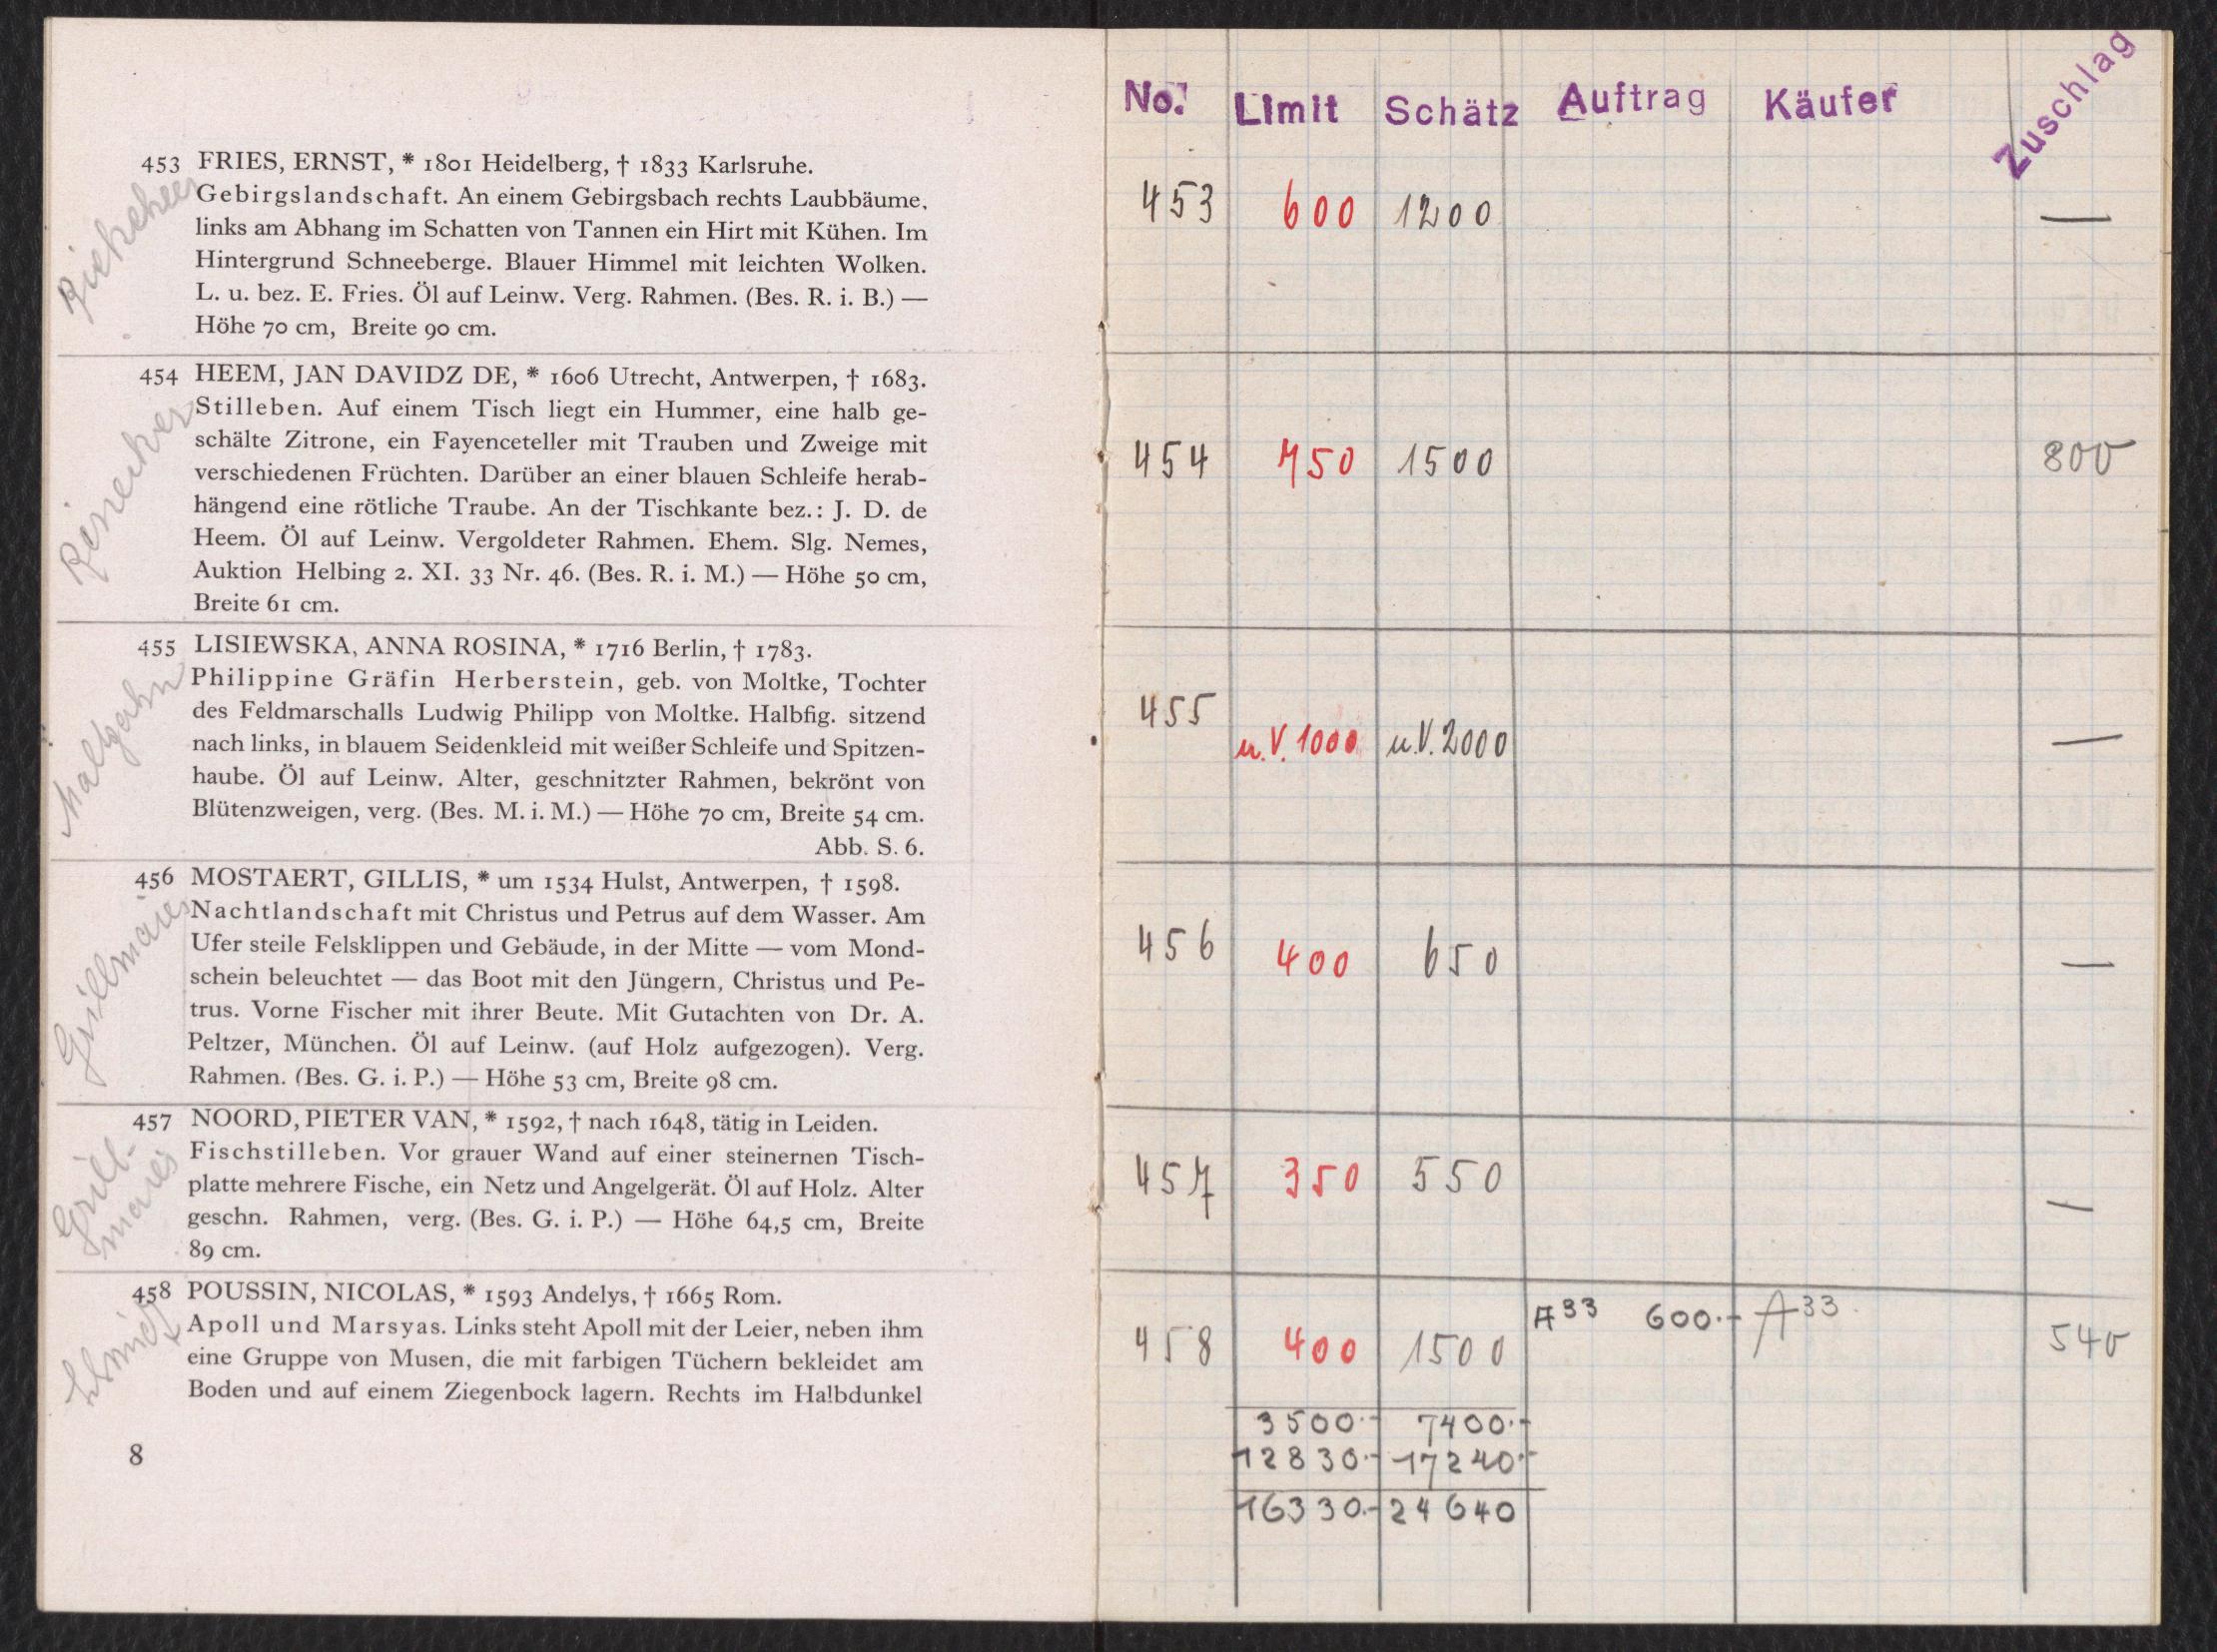 453 FRIES, ERNST, * 1801 Heidelberg, † 1833 Karlsruhe.
Gebirgslandschaft. An einem Gebirgsbach rechts Laubbäume,
links am Abhang im Schatten von Tannen ein Hirt mit Kühen. Im
Hintergrund Schneeberge. Blauer Himmel mit leichten Wolken.
L. u. bez. E. Fries. Öl auf Leinw. Verg. Rahmen. (Bes. R. i. B.) —
Höhe 70 cm, Breite 90 cm.
454 HEEM, JAN DAVIDZ DE, * 1606 Utrecht, Antwerpen, † 1683.
Rinecker
Stilleben. Auf einem Tisch liegt ein Hummer, eine halb ge-
schälte Zitrone, ein Fayenceteller mit Trauben und Zweige mit
verschiedenen Früchten. Darüber an einer blauen Schleife herab-
hängend eine rötliche Traube. An der Tischkante bez.: J. D. de
Heem. Öl auf Leinw. Vergoldeter Rahmen. Ehem. Slg. Nemes,
Auktion Helbing 2. XI. 33 Nr. 46. (Bes. R. i. M.) — Höhe 50 cm,
Breite 61 cm.
455 LISIEWSKA, ANNA ROSINA, * 1716 Berlin, † 1783.
Maltzahn
Philippine Gräfin Herberstein, geb. von Moltke, Tochter
des Feldmarschalls Ludwig Philipp von Moltke. Halbfig. sitzend
nach links, in blauem Seidenkleid mit weißer Schleife und Spitzen-
haube. Öl auf Leinw. Alter, geschnitzter Rahmen, bekrönt von
Blütenzweigen, verg. (Bes. M. i. M.) — Höhe 70 cm, Breite 54 cm.
Abb. S. 6.
456 MOSTAERT, GILLIS, * um 1534 Hulst, Antwerpen, † 1598.
Grillmaier
Nachtlandschaft mit Christus und Petrus auf dem Wasser. Am
Ufer steile Felsklippen und Gebäude, in der Mitte — vom Mond-
schein beleuchtet — das Boot mit den Jüngern, Christus und Pe-
trus. Vorne Fischer mit ihrer Beute. Mit Gutachten von Dr. A.
Peltzer, München. Öl auf Leinw. (auf Holz aufgezogen). Verg.
Rahmen. (Bes. G. i. P.) — Höhe 53 cm, Breite 98 cm.
457 NOORD, PIETER VAN, * 1592, † nach 1648, tätig in Leiden.
Grill-
maier
Fischstilleben. Vor grauer Wand auf einer steinernen Tisch-
platte mehrere Fische, ein Netz und Angelgerät. Öl auf Holz. Alter
geschn. Rahmen, verg. (Bes. G. i. P.) — Höhe 64,5 cm, Breite
89 cm.
458 POUSSIN, NICOLAS, * 1593 Andelys, † 1665 Rom.
Schmidt
Apoll und Marsyas. Links steht Apoll mit der Leier, neben ihm
eine Gruppe von Musen, die mit farbigen Tüchern bekleidet am
Boden und auf einem Ziegenbock lagern. Rechts im Halbdunkel
8
No. Limit Schätz Auftrag Käufer Zuschlag
453 600 1200 —
454 750 1500 800
455 u.V. 1000 u.V. 2000 —
456 400 650 —
457 350 550 —
458 400 1500 A33 600.- A33 540
3500.- 7400.-
12830.- 17240.-
16330.- 24640